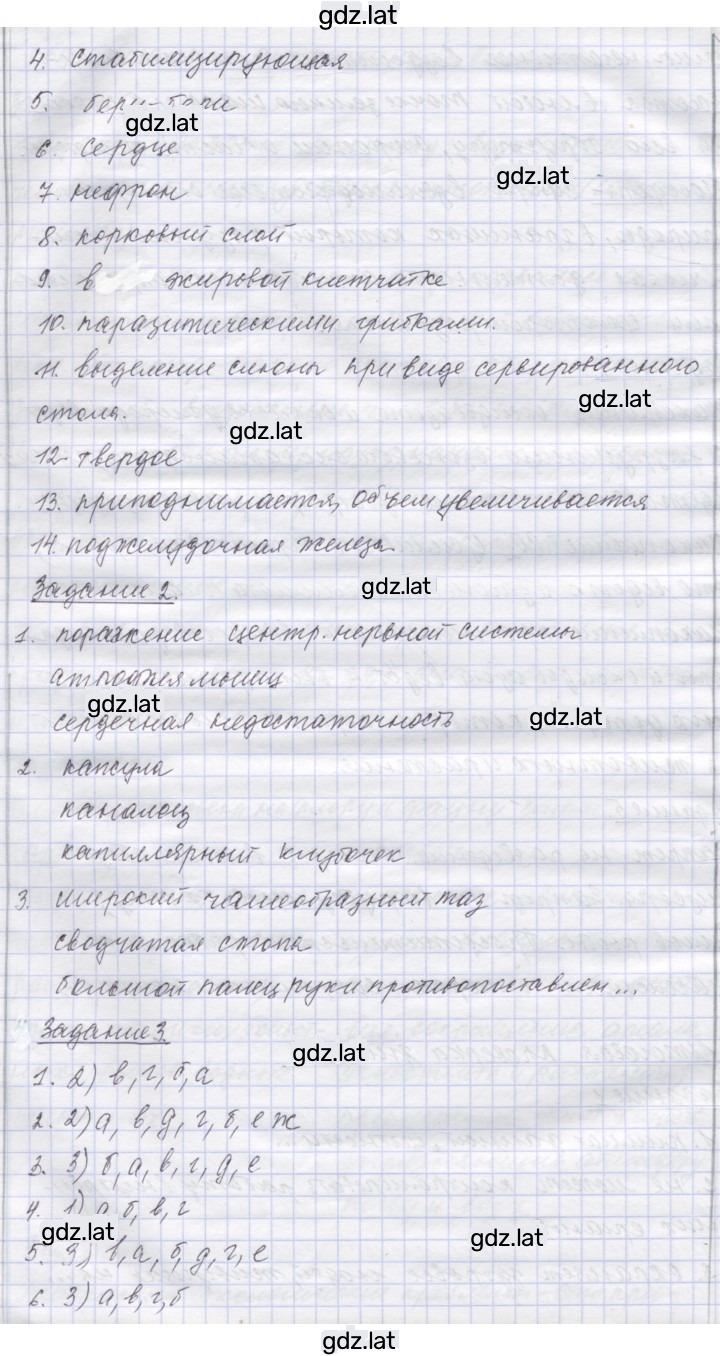 gdz.lat
4. стабилизирующая
5. бери-бери
gdz.lat
6. Сердце
gdz.lat
7. нефрон
8. корковый слой
9. в жировой клетчатке
10. паразитическими грибками.
11. выделение слюны при виде сервированного
gdz.lat
стола.
gdz.lat
12. твердое
13. приподнимается, объем увеличивается
14. поджелудочная железа
Задание 2.
gdz.lat
1. поражение центр. нервной системы
атрофия мышц
gdz.lat
сердечная недостаточность
gdz.lat
2. капсула
каналец
капиллярный клубочек
3. широкий чашеобразный таз
сводчатая стопа
большой палец руки противопоставлен...
Задание 3.
gdz.lat
1. 2) в, г, б, а
2. 2) а, в, д, г, б, е ж
3. 3) б, а, в, г, д, е
4. 1) а, б, в, г
gdz.lat
gdz.lat
5. 3) в, а, б, д, г, е
6. 3) а, в, г, б
gdz.lat